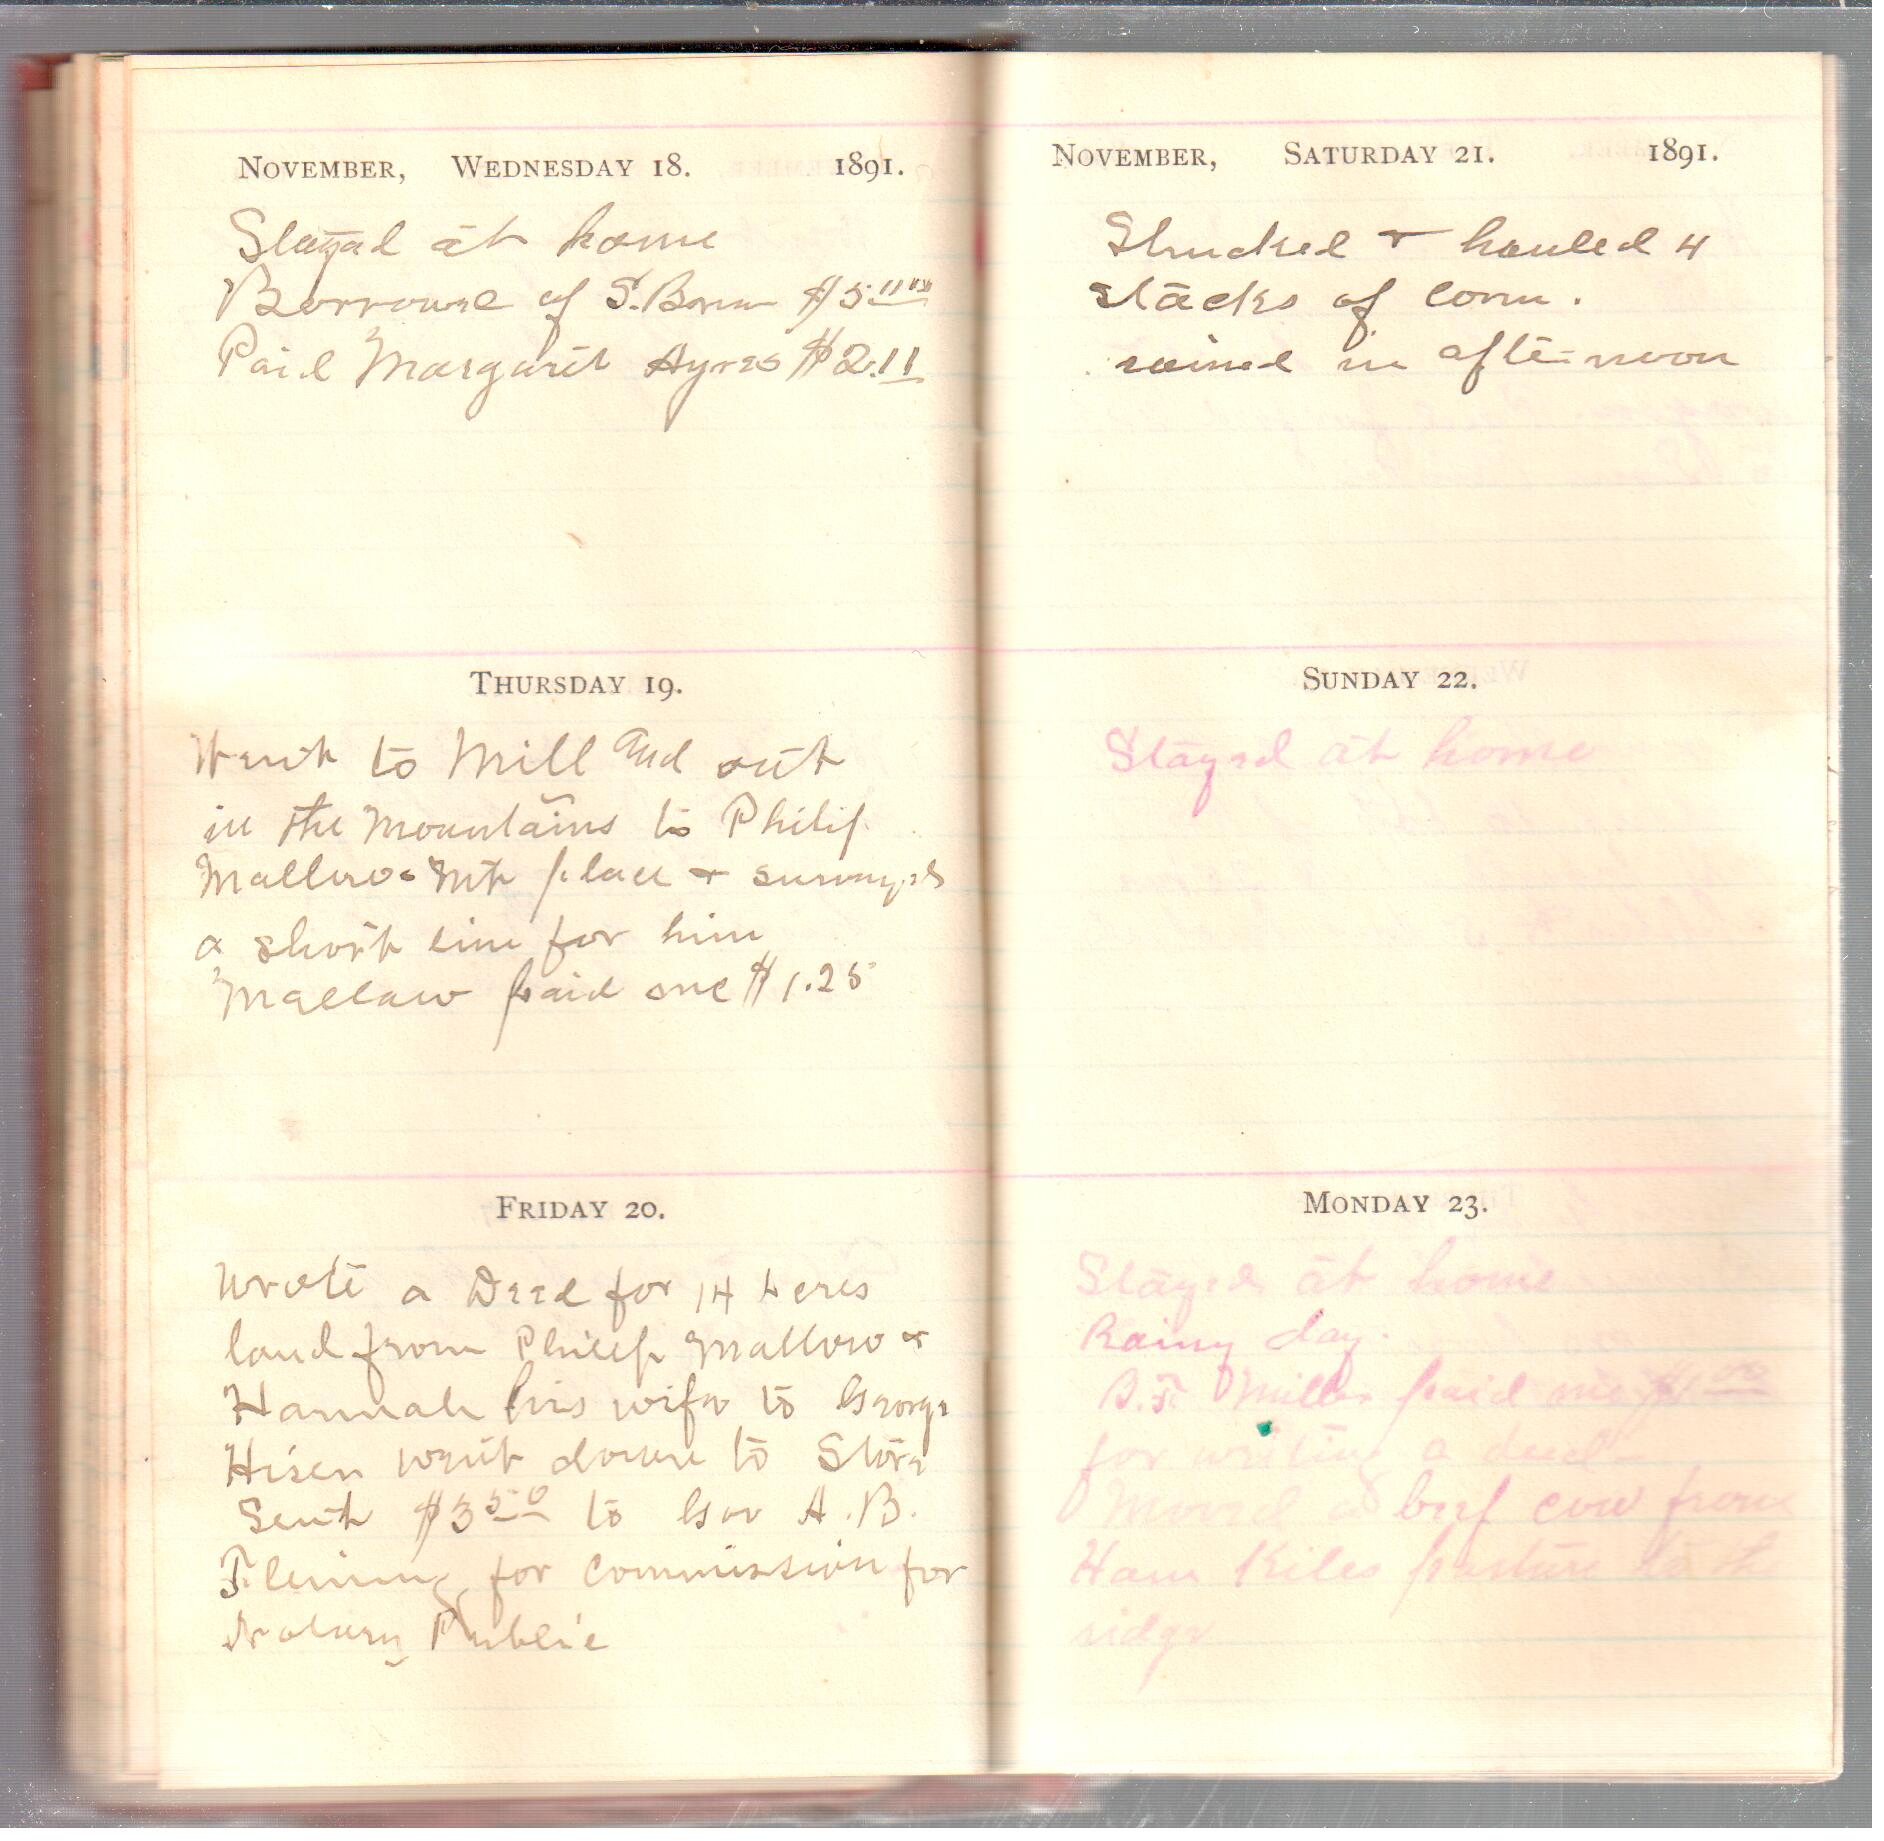 NOVEMBER, WEDNESDAY 18. 1891.
Stayed at home
Borrowed of S. Borer $5.00
Paid Margaret Ayres $2.11
THURSDAY 19.
Went to Mill and out
in the Mountains to Philip
Mallows Mt place & surveyed
a short line for him
Mallow paid me $1.25
FRIDAY 20.
Wrote a Deed for 14 Acres
land from Philip Mallow &
Hannah his wife to George
Hisen went down to Store
Sent $3.50 to Gov A.B.
Fleming for Commission for
Notary Public
NOVEMBER, SATURDAY 21. 1891.
Shucked & hauled 4
stacks of corn.
rained in afternoon
SUNDAY 22.
Stayed at home
MONDAY 23.
Stayed at home
Rainy day.
Miller paid me $1.00
for writing a deed
Moved a beef cow from
Ham Kiles pasture to the
ridge